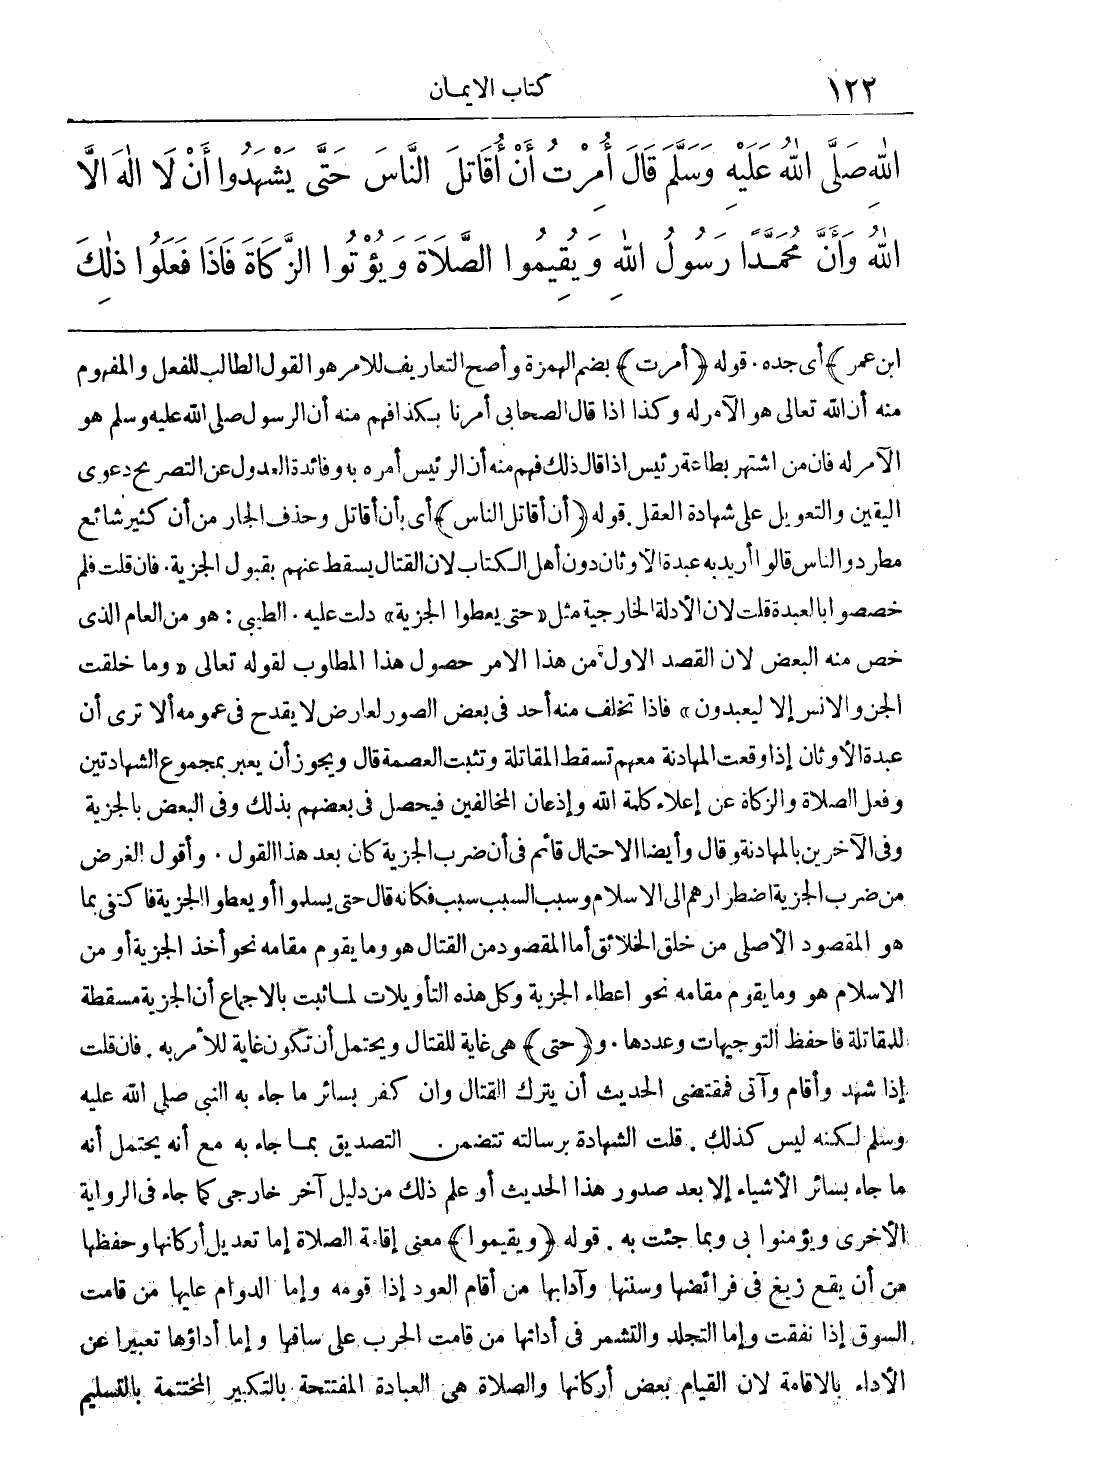 ١٢٢ كتاب الايمان
اللّٰهِ صَلَّى اللّٰهُ عَلَيْهِ وَسَلَّمَ قَالَ أُمِرْتُ أَنْ أُقَاتِلَ النَّاسَ حَتَّى يَشْهَدُوا أَنْ لَا الٰهَ الَّا
اللّٰهُ وَأَنَّ مُحَمَّدًا رَسُولُ اللّٰهِ وَيُقِيمُوا الصَّلَاةَ وَيُؤْتُوا الزَّكَاةَ فَاذَا فَعَلُوا ذٰلِكَ
ابن عمر﴾ أى جده. قوله ﴿أمرت﴾ بضم الهمزة وأصح التعاريف للامر هو القول الطالب للفعل والمفهوم
منه أن الله تعالى هو الآمر له وكذا اذا قال الصحابى أمرنا بكذا فهم منه أن الرسول صلى الله عليه وسلم هو
الآمر له فان من اشتهر بطاعة رئيس اذا قال ذلك فهم منه أن الرئيس أمره به وفائدة العدول عن التصريح دعوى
اليقين والتعويل على شهادة العقل. قوله ﴿أن أقاتل الناس﴾ أى بأن أقاتل وحذف الجار من أن كثير شائع
مطرد والناس قالوا أريد به عبدة الأوثان دون أهل الكتاب لان القتال يسقط عنهم بقبول الجزية. فان قلت فلم
خصصوا بالعبدة قلت لان الأدلة الخارجية مثل «حتى يعطوا الجزية» دلت عليه. الطيبى: هو من العام الذى
خص منه البعض لان القصد الاول من هذا الامر حصول هذا المطلوب لقوله تعالى «وما خلقت
الجن والانس إلا ليعبدون» فاذا تخلف منه أحد فى بعض الصور لعارض لا يقدح فى عمومه ألا ترى أن
عبدة الأوثان إذا وقعت المهادنة معهم تسقط المقاتلة وتثبت العصمة قال ويجوز أن يعبر بمجموع الشهادتين
وفعل الصلاة والزكاة عن إعلاء كلمة الله وإذعان المخالفين فيحصل فى بعضهم بذلك وفى البعض بالجزية
وفى الآخرين بالمهادنة وقال وأيضا الاحتمال قائم فى أن ضرب الجزية كان بعد هذا القول. وأقول الغرض
من ضرب الجزية اضطرارهم الى الاسلام وسبب السبب سبب فكانه قال حتى يسلموا أو يعطوا الجزية فاكتفى بما
هو المقصود الأصلى من خلق الخلائق أما المقصود من القتال هو وما يقوم مقامه نحو أخذ الجزية أو من
الاسلام هو وما يقوم مقامه نحو اعطاء الجزية وكل هذه التأويلات لما ثبت بالاجماع أن الجزية مسقطة
للمقاتلة فاحفظ التوجيهات وعددها. و﴿حتى﴾ هى غاية للقتال ويحتمل أن تكون غاية للأمر به. فان قلت
إذا شهد وأقام وآتى فمقتضى الحديث أن يترك القتال وان كفر بسائر ما جاء به النبى صلى الله عليه
وسلم لكنه ليس كذلك. قلت الشهادة برسالته تتضمن التصديق بما جاء به مع أنه يحتمل أنه
ما جاء بسائر الأشياء إلا بعد صدور هذا الحديث أو علم ذلك من دليل آخر خارجى كما جاء فى الرواية
الأخرى ويؤمنوا بى وبما جئت به. قوله ﴿ويقيموا﴾ معنى إقامة الصلاة إما تعديل أركانها وحفظها
من أن يقع زيغ فى فرائضها وسننها وآدابها من أقام العود إذا قومه وإما الدوام عليها من قامت
السوق إذا نفقت وإما التجلد والتشمر فى أدائها من قامت الحرب على ساقها وإما أداؤها تعبيرا عن
الأداء بالاقامة لان القيام بعض أركانها والصلاة هى العبادة المفتتحة بالتكبير المختتمة بالتسليم